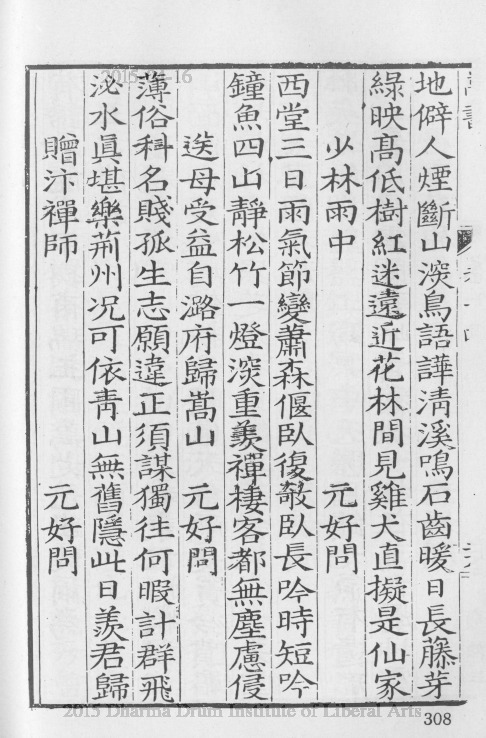 地僻人煙斷山深鳥語譁淸溪鳴石齒暖日長藤芽
綠映髙低樹紅迷遠近花林間見雞犬直擬是仙家
少林雨中　元好問
西堂三日雨氣節變蕭森偃臥復欹臥長吟時短吟
鐘魚四山靜松竹一燈深重羨禪棲客都無塵慮侵
送母受益自潞府歸嵩山　元好問
薄俗科名賤孤生志願違正須謀獨往何暇計群飛
泌水眞堪樂荊州况可依靑山無舊隱此日羨君歸
贈汴禪師　元好問
2015 Dharma Drum Institute of Liberal Arts
308